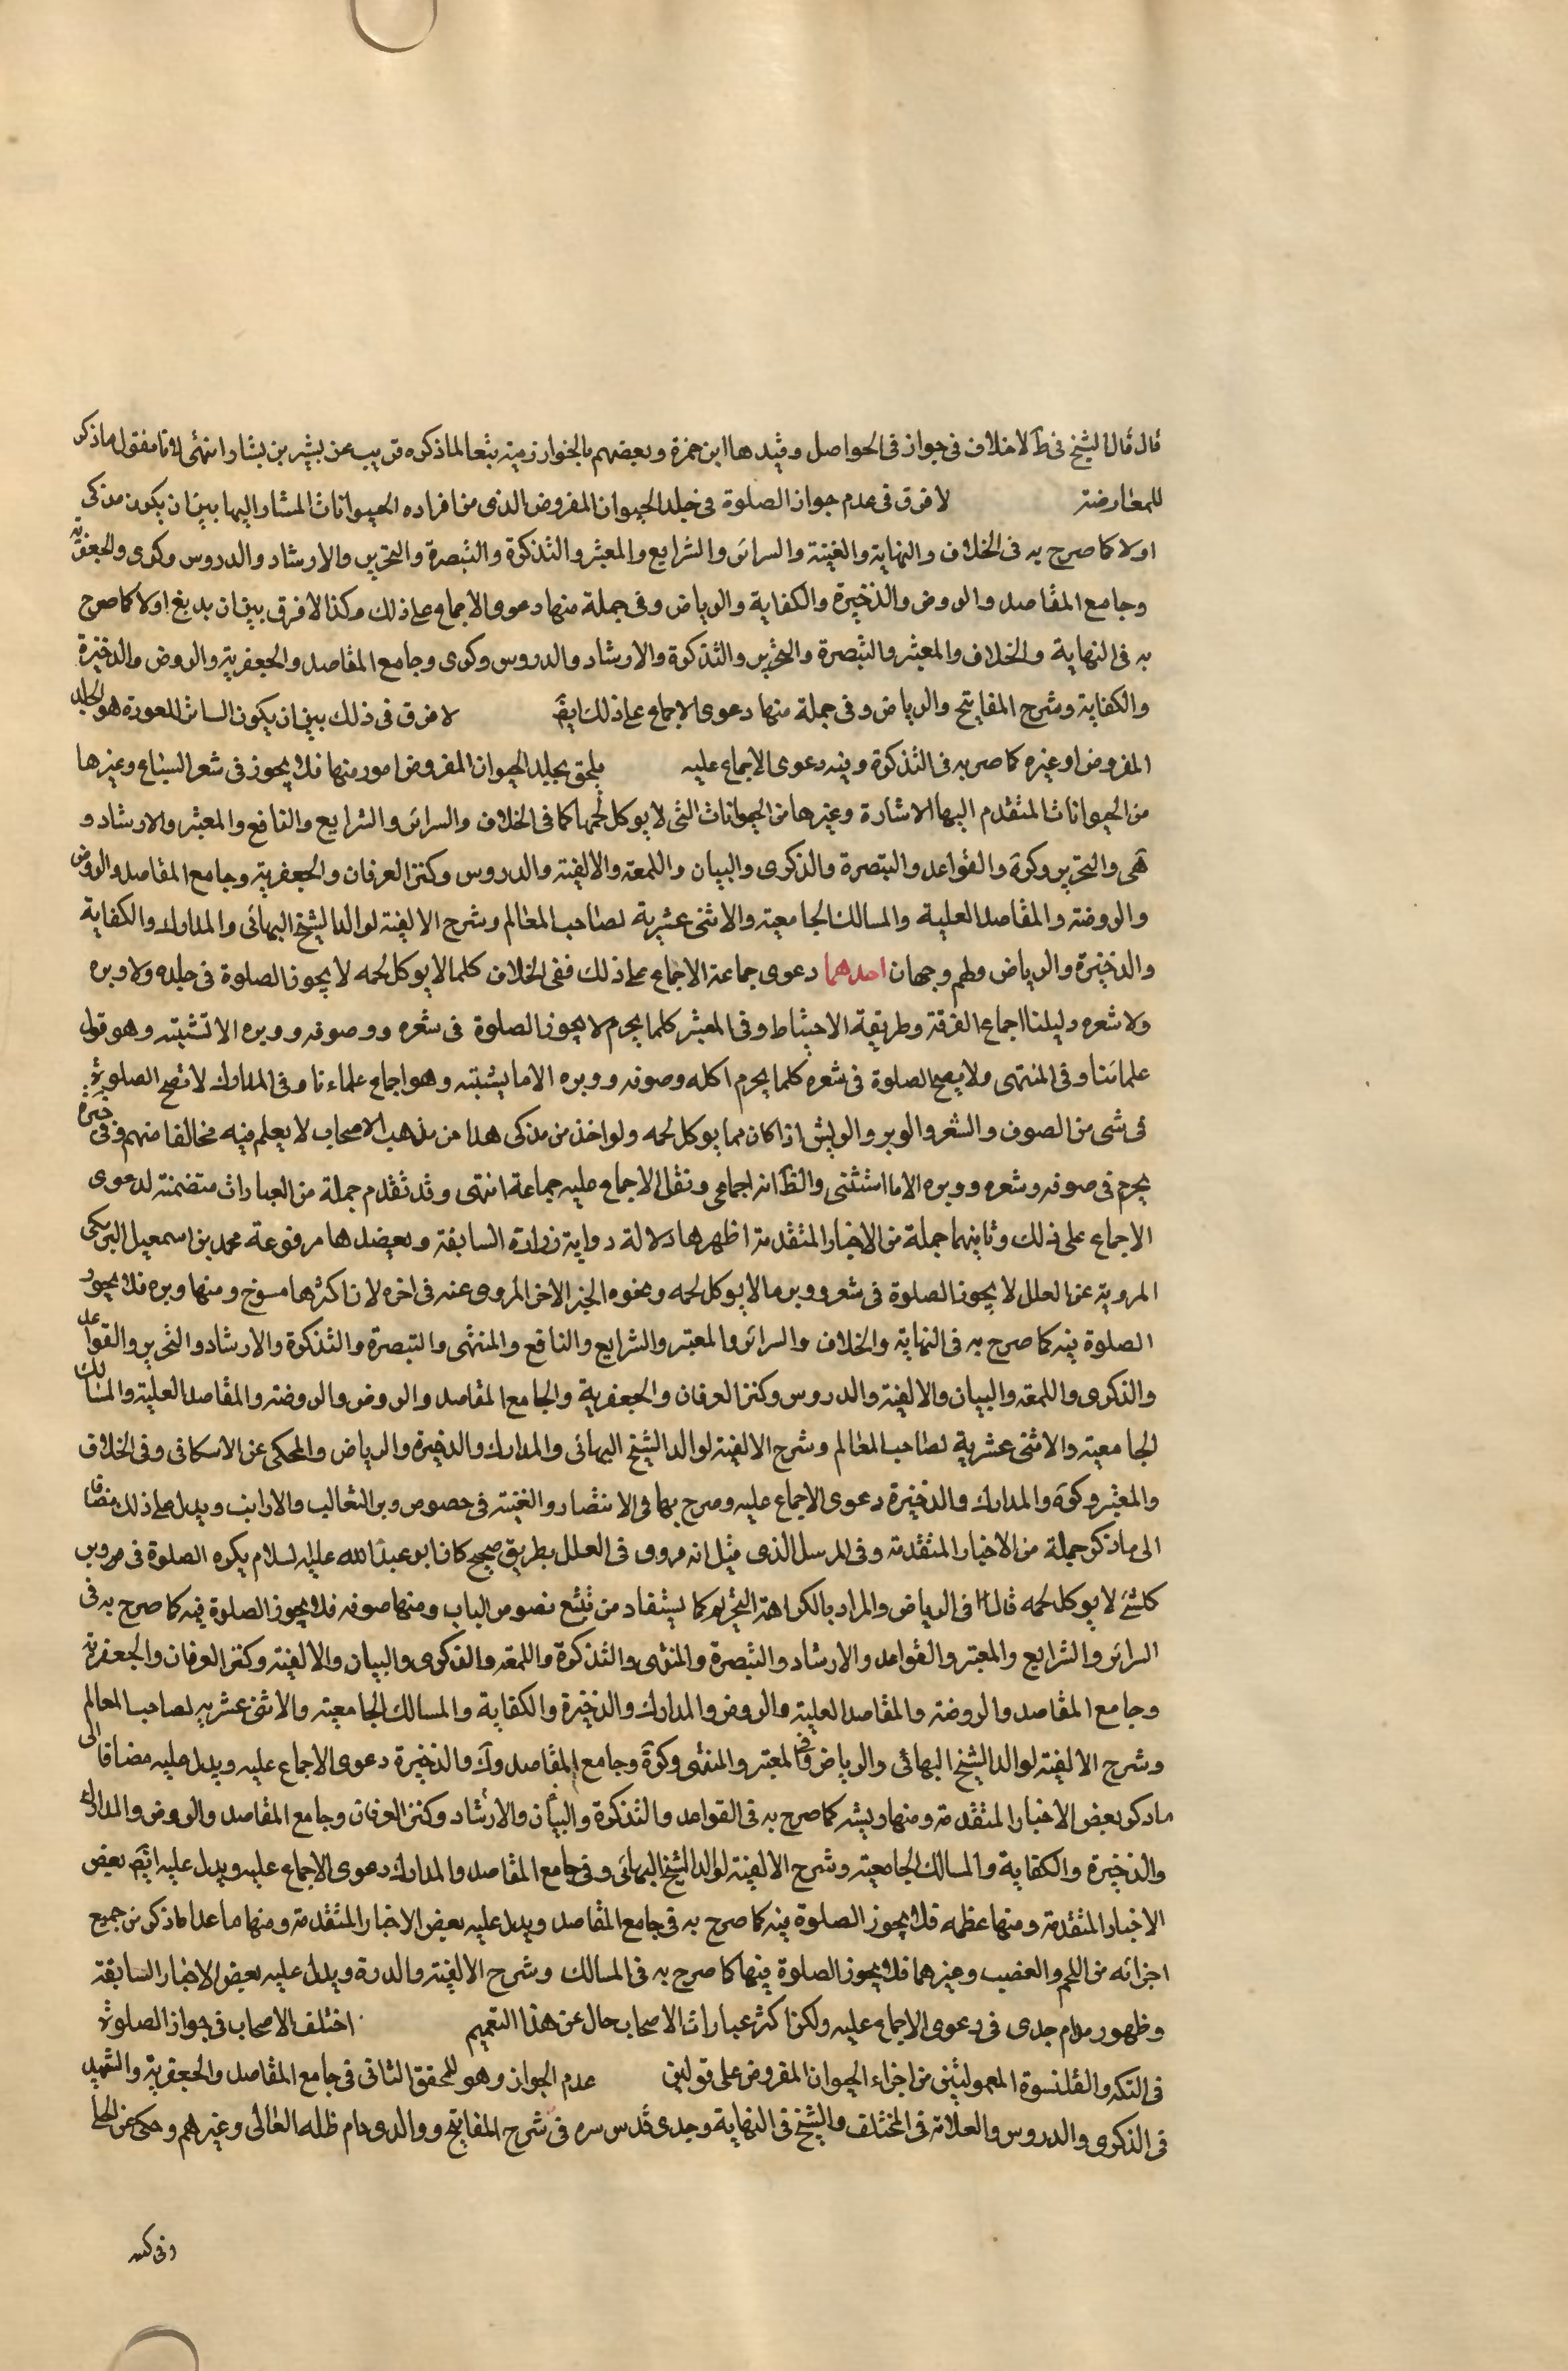 قال قال الشيخ فى ط لا خلاف فى جواز فى الحواصل وقيدها ابن حمزة وبعضهم بالخوارزمية تبعا لما ذكره قريب عن بشير بن بشار انتهى لانا نقول ما ذكر
للمعارضة لا فرق فى عدم جواز الصلوة فى جلد الحيوان المفروض الذى من افراده الحيوانات المشار اليها بين ان يكون مذكى
اولا كما صرح به فى الخلاف والنهاية والغنية والسرائر والشرايع والمعتبر والتذكرة والتبصرة والتحرير والارشاد والدروس وكرى والجعفرية
وجامع المقاصد والروض والذخيرة والكفاية والرياض وفى جملة منها دعوى الاجماع على ذلك وكذا لا فرق بين ان يدبغ اولا كما صرح
به فى النهاية والخلاف والمعتبر والتبصرة والتحرير والتذكرة والارشاد والدروس وكرى وجامع المقاصد والجعفرية والروض والذخيرة
والكفاية وشرح المفاتيح والرياض وفى جملة منها دعوى الاجماع على ذلك ايضا لا فرق فى ذلك بين ان يكون الساتر للعورة هو الجلد
المفروض او غيره كما صرح به فى التذكرة وفيه دعوى الاجماع عليه يلحق بجلد الحيوان المفروض امور منها فلا يجوز فى شعر السباع وغيرها
من الحيوانات المتقدم اليها الاشارة وغيرها من الحيوانات التى لا يوكل لحمها كما فى الخلاف والسرائر والشرايع والنافع والمعتبر والارشاد و
هى والتحرير وكرة والقواعد والتبصرة والذكرى والبيان واللمعة والالفية والدروس وكنز العرفان والجعفرية وجامع المقاصد والروض
والروضة والمقاصد العلية والمسالك الجامعية والاثنى عشرية لصاحب المعالم وشرح الالفية لوالد الشيخ البهائى والمدارك والكفاية
والذخيرة والرياض ولهم وجهان احدهما دعوى جماعة الاجماع على ذلك ففى الخلاف كلما لا يوكل لحمه لا يجوز الصلوة فى جلده ولا وبره
ولا شعره دليلنا اجماع الفرقة وطريقة الاحتياط وفى المعتبر كلما يحرم لا يجوز الصلوة فى شعره وصوفه ووبره الا نستثنيه وهو قول
علمائنا وفى المنتهى ولا يصح الصلوة فى شعر كلما يحرم اكله وصوفه ووبره الا ما يستثنيه وهو اجماع علماءنا وفى المدارك لا تصح الصلوة
فى شى من الصوف والشعر والوبر والريش اذا كان مما يوكل لحمه ولو اخذ من مذكى هذا من مذهب الاصحاب لا يعلم فيه مخالفا منهم وفى خيرة
يحرم فى صوفه وشعره ووبره الا ما استثنى والظ انه اجماعى ونقل الاجماع عليه جماعة انتهى وقد تقدم جملة من العبارات متضمنة لدعوى
الاجماع على ذلك وثانيهما جملة من الاخبار المتقدمة اظهرها دلالة رواية زرارة السابقة ويعضدها مرفوعة محمد بن اسمعيل البرمكى
المروية عن العلل لا يجوز الصلوة فى شعر ووبر ما لا يوكل لحمه ونحوه الخبر الاخر المروى عنه فى اخره لان اكثرها مسوخ ومنها وبره فلا يجوز
الصلوة فيه كما صرح به فى النهاية والخلاف والسرائر والمعتبر والشرايع والنافع والمنتهى والتبصرة والتذكرة والارشاد والتحرير والقواعد
والذكرى واللمعة والبيان والالفية والدروس وكنز العرفان والجعفرية والجامع المقاصد والروض والروضة والمقاصد العلية والمسالك
الجامعية والاثنى عشرية لصاحب المعالم وشرح الالفية لوالد الشيخ البهائى والمدارك والذخيرة والرياض والمحكى عن الاسكافى وفى الخلاف
والمعتبر وكرة والمدارك والذخيرة دعوى الاجماع عليه وصرح بها فى الانتصار والغنية فى خصوص وبر الثعالب والارانب ويدل على ذلك مضافا
الى ما ذكر جملة من الاخبار المتقدمة وفى المرسل الذى قيل انه مروى فى العلل بطريق صحيح كان ابو عبد الله عليه السلام يكره الصلوة فى وبر
كل شئ لا يوكل لحمه قال فى الرياض والمراد بالكراهة التحريم كما يستفاد من تتبع نصوص الباب ومنها صوفه فلا يجوز الصلوة فيه كما صرح به فى
السرائر والشرايع والمعتبر والقواعد والارشاد والتبصرة والمنتهى والتذكرة واللمعة والذكرى والبيان والالفية وكنز العرفان والجعفرية
وجامع المقاصد والروضة والمقاصد العلية والروض والمدارك والذخيرة والكفاية والمسالك الجامعية والاثنى عشرية لصاحب المعالم
وشرح الالفية لوالد الشيخ البهائى والرياض وفى المعتبر والمنتهى وكرة وجامع المقاصد وك والذخيرة دعوى الاجماع عليه ويدل عليه مضافا الى
ما ذكر بعض الاخبار المتقدمة ومنها ريشه كما صرح به فى القواعد والتذكرة والبيان والارشاد وكنز العرفان وجامع المقاصد والروض والمدارك
والذخيرة والكفاية والمسالك الجامعية وشرح الالفية لوالد الشيخ البهائى وفى جامع المقاصد والمدارك دعوى الاجماع عليه ويدل عليه ايضا بعض
الاخبار المتقدمة ومنها عظمه فلا يجوز الصلوة فيه كما صرح به فى جامع المقاصد ويدل عليه بعض الاخبار المتقدمة ومنها ما عدا ما ذكر من جميع
اجزائه من اللحم والعصب وغيرهما فلا يجوز الصلوة فيها كما صرح به فى المسالك وشرح الالفية والدرة ويدل عليه بعض الاخبار السابقة
وظهور كلام جدى فى دعوى الاجماع عليه ولكن اكثر عبارات الاصحاب خال عن هذا التعميم اختلف الاصحاب فى جواز الصلوة
فى التكة والقلنسوة المعمولتين من اجزاء الحيوان المفروض على قولين عدم الجواز وهو للمحقق الثانى فى جامع المقاصد والجعفرية والشهيد
فى الذكرى والدروس والعلامة فى المختلف والشيخ فى النهاية وجدى قدس سره فى شرح المفاتيح ووالدى دام ظله العالى وغيرهم وحكى عن